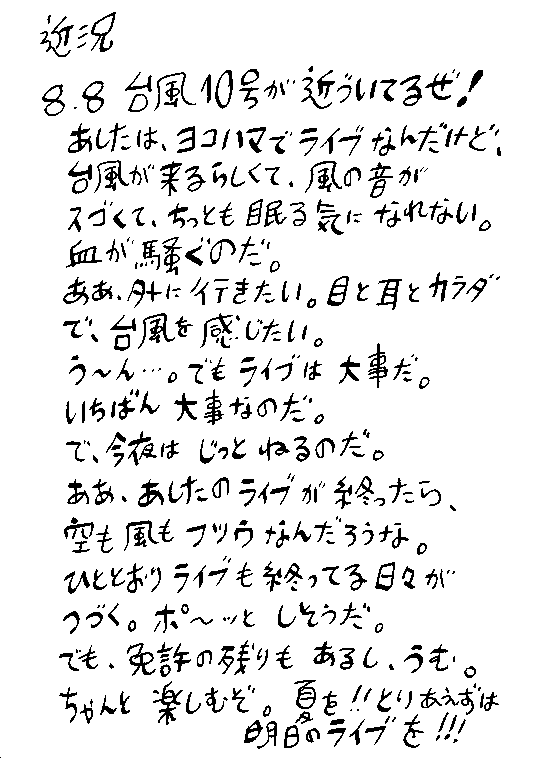 近況
8.8 台風10号が近づいてるぜ!
あしたは、ヨコハマでライブなんだけど、
台風が来るらしくて、風の音が
スゴくて、ちっとも眠る気になれない。
血が騒ぐのだ。
ああ、外に行きたい。目と耳とカラダ
で、台風を感じたい。
う〜ん…。でもライブは大事だ。
いちばん大事なのだ。
で、今夜はじっとねるのだ。
ああ、あしたのライブが終ったら、
空も風もフツウなんだろうな。
ひととおりライブも終ってる日々が
つづく。ポ〜ッとしそうだ。
でも、免許の残りもあるし、うむ。
ちゃんと楽しむぞ。夏を!!とりあえずは
明日のライブを!!!